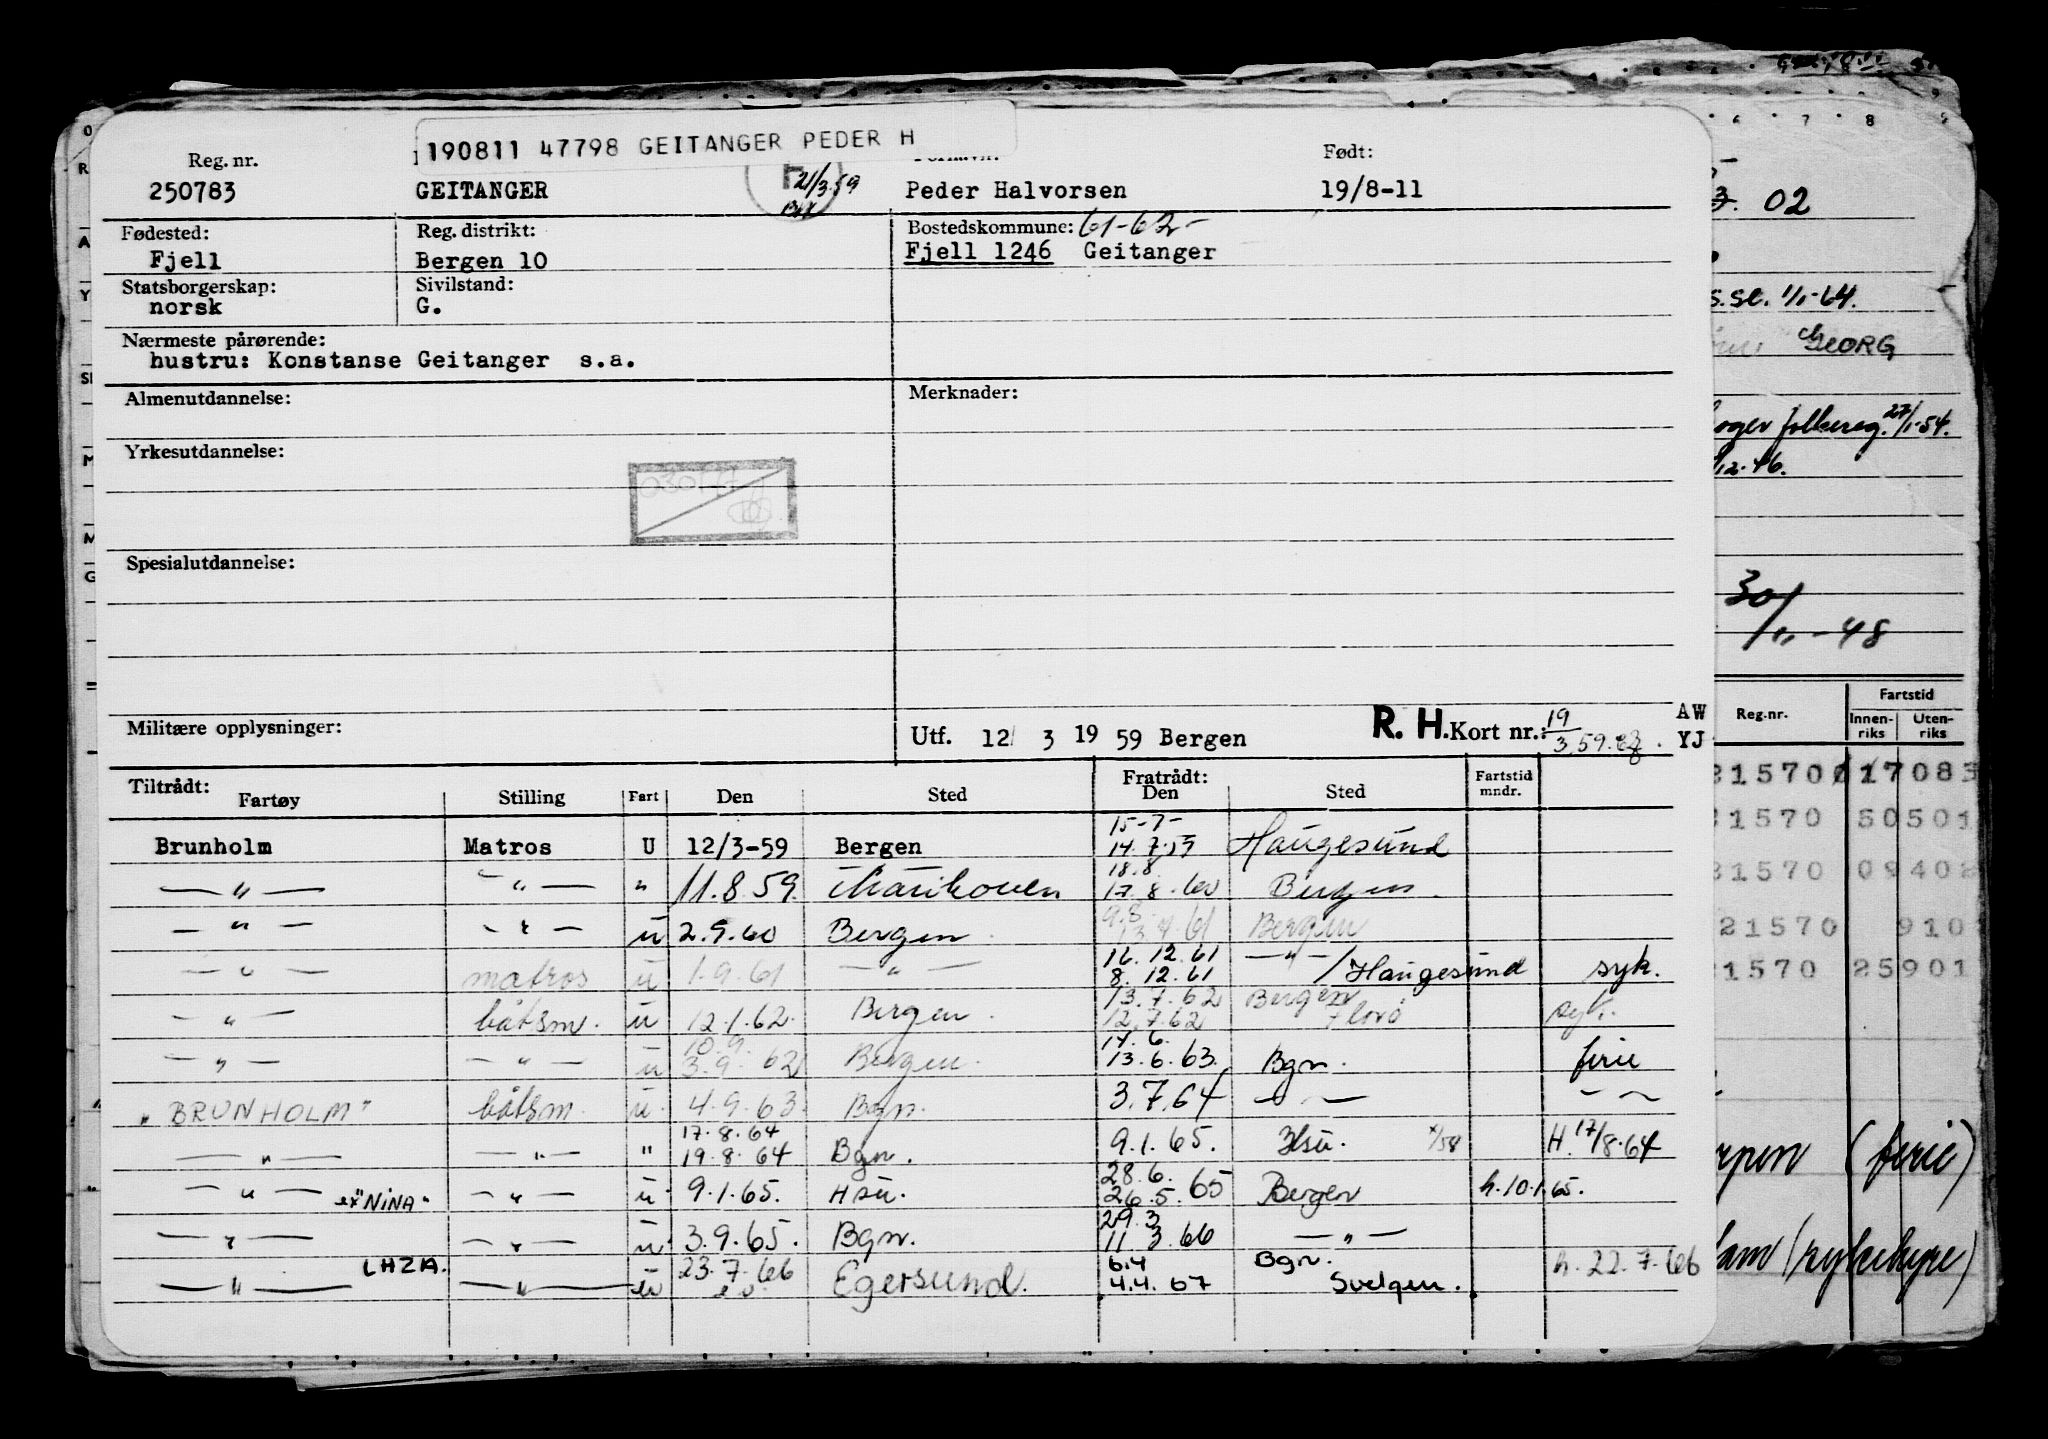 190811 47798 GEITANGER PEDER H
Reg. nr. Født:
250783 GEITANGER 21/3.59 Peder Halvorsen 19/8-11
Fødested: Reg. distrikt: Bostedskommune: 61-62-
Fjell Bergen 10 Fjell 1246 Geitanger
Statsborgerskap: Sivilstand:
norsk G.
Nærmeste pårørende:
hustru: Konstanse Geitanger s.a.
Almenutdannelse: Merknader:
Yrkesutdannelse:
Spesialutdannelse:
Militære opplysninger: Utf. 12/ 3 19 59 Bergen R. H. Kort nr.: 19/3 59.
AW
YJ
Tiltrådt: Fratrådt:
Fartøy Stilling Fart Den Sted Den Sted Fartstid mndr.
15-7-
Brunholm Matros U 12/3-59 Bergen 14.7.59 Haugesund
18.8.
—"— —"— " 11.8.59. 17.8.60 Bergen.
9.8.
—"— —"— u 2.9.60 Bergen. 61 Bergen
16.12.61 —"—
—"— matros u 1.9.61 —"— 8.12.61 /Haugesund syk.
13.7.62 Bergen
—"— båtsm. u 12.1.62. Bergen. 12.7.62 Florö syk.
10.9. 14.6.
—"— —"— u 3.9.62 Bergen. 13.6.63. Bgn. ferie
"BRUNHOLM" båtsm. u. 4.9.63. Bgn. 3.7.64 —"— —"—
17.8.64
—"— —"— " 19.8.64 Bgn. 9.1.65. Hsu. H. 17/8.64
28.6.
—"— ex "NINA" —"— u 9.1.65. Hsu. 26.5.65 Bergen h.10.1.65.
29.3
—"— —"— u 3.9.65. Bgn. 11 3.66 —"—
LHZA. 23.7.66 6.4 Bgn.
—"— —"— u Egersund. 4.4.67 Svelgen. h. 22.7.66
02
1/1-64.
GEORG
folkereg. 27/1-54.
12.46.
30/11-48
Fartstid
Reg.nr. Innen-riks Uten-riks
21570 17083
1570 50501
1570 09402
21570 910
1570 25901
(ferie)